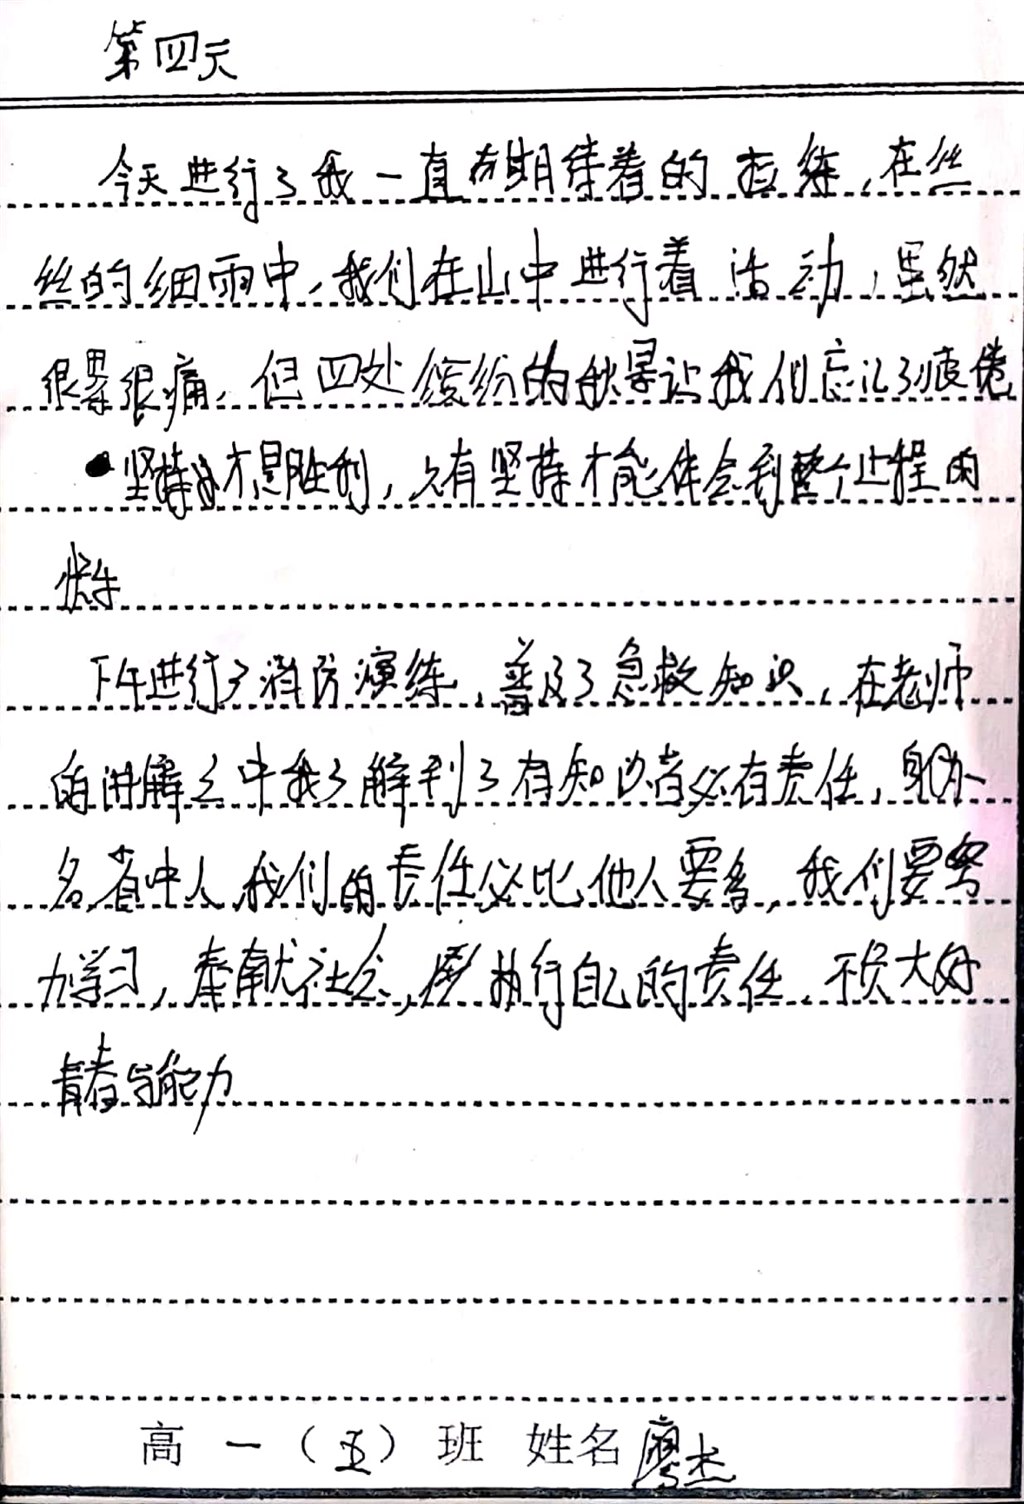 第四天
今天进行了我一直期待着的拉练,在丝
丝的细雨中,我们在山中进行着活动,虽然
很累很痛,但四处缤纷的秋景让我们忘记了疲倦
坚持才是胜利,只有坚持才能体会到整个过程的
快乐
下午进行了消防演练,普及了急救知识,在老师
的讲解之中我了解到了有知识者必有责任,身为一
名省中人,我们的责任必比他人要多,我们要努
力学习,奉献社会,履执行自己的责任,不负大好
青春与能力
高一(五)班 姓名廖杰